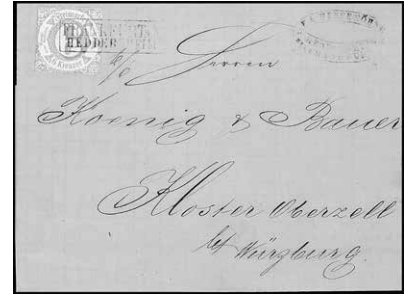 FRANKFURT A.
HEDDERNHEIM
Kreuzer
Herren
Koenig & Bauer
Kloster Oberzell
bei Würzburg.